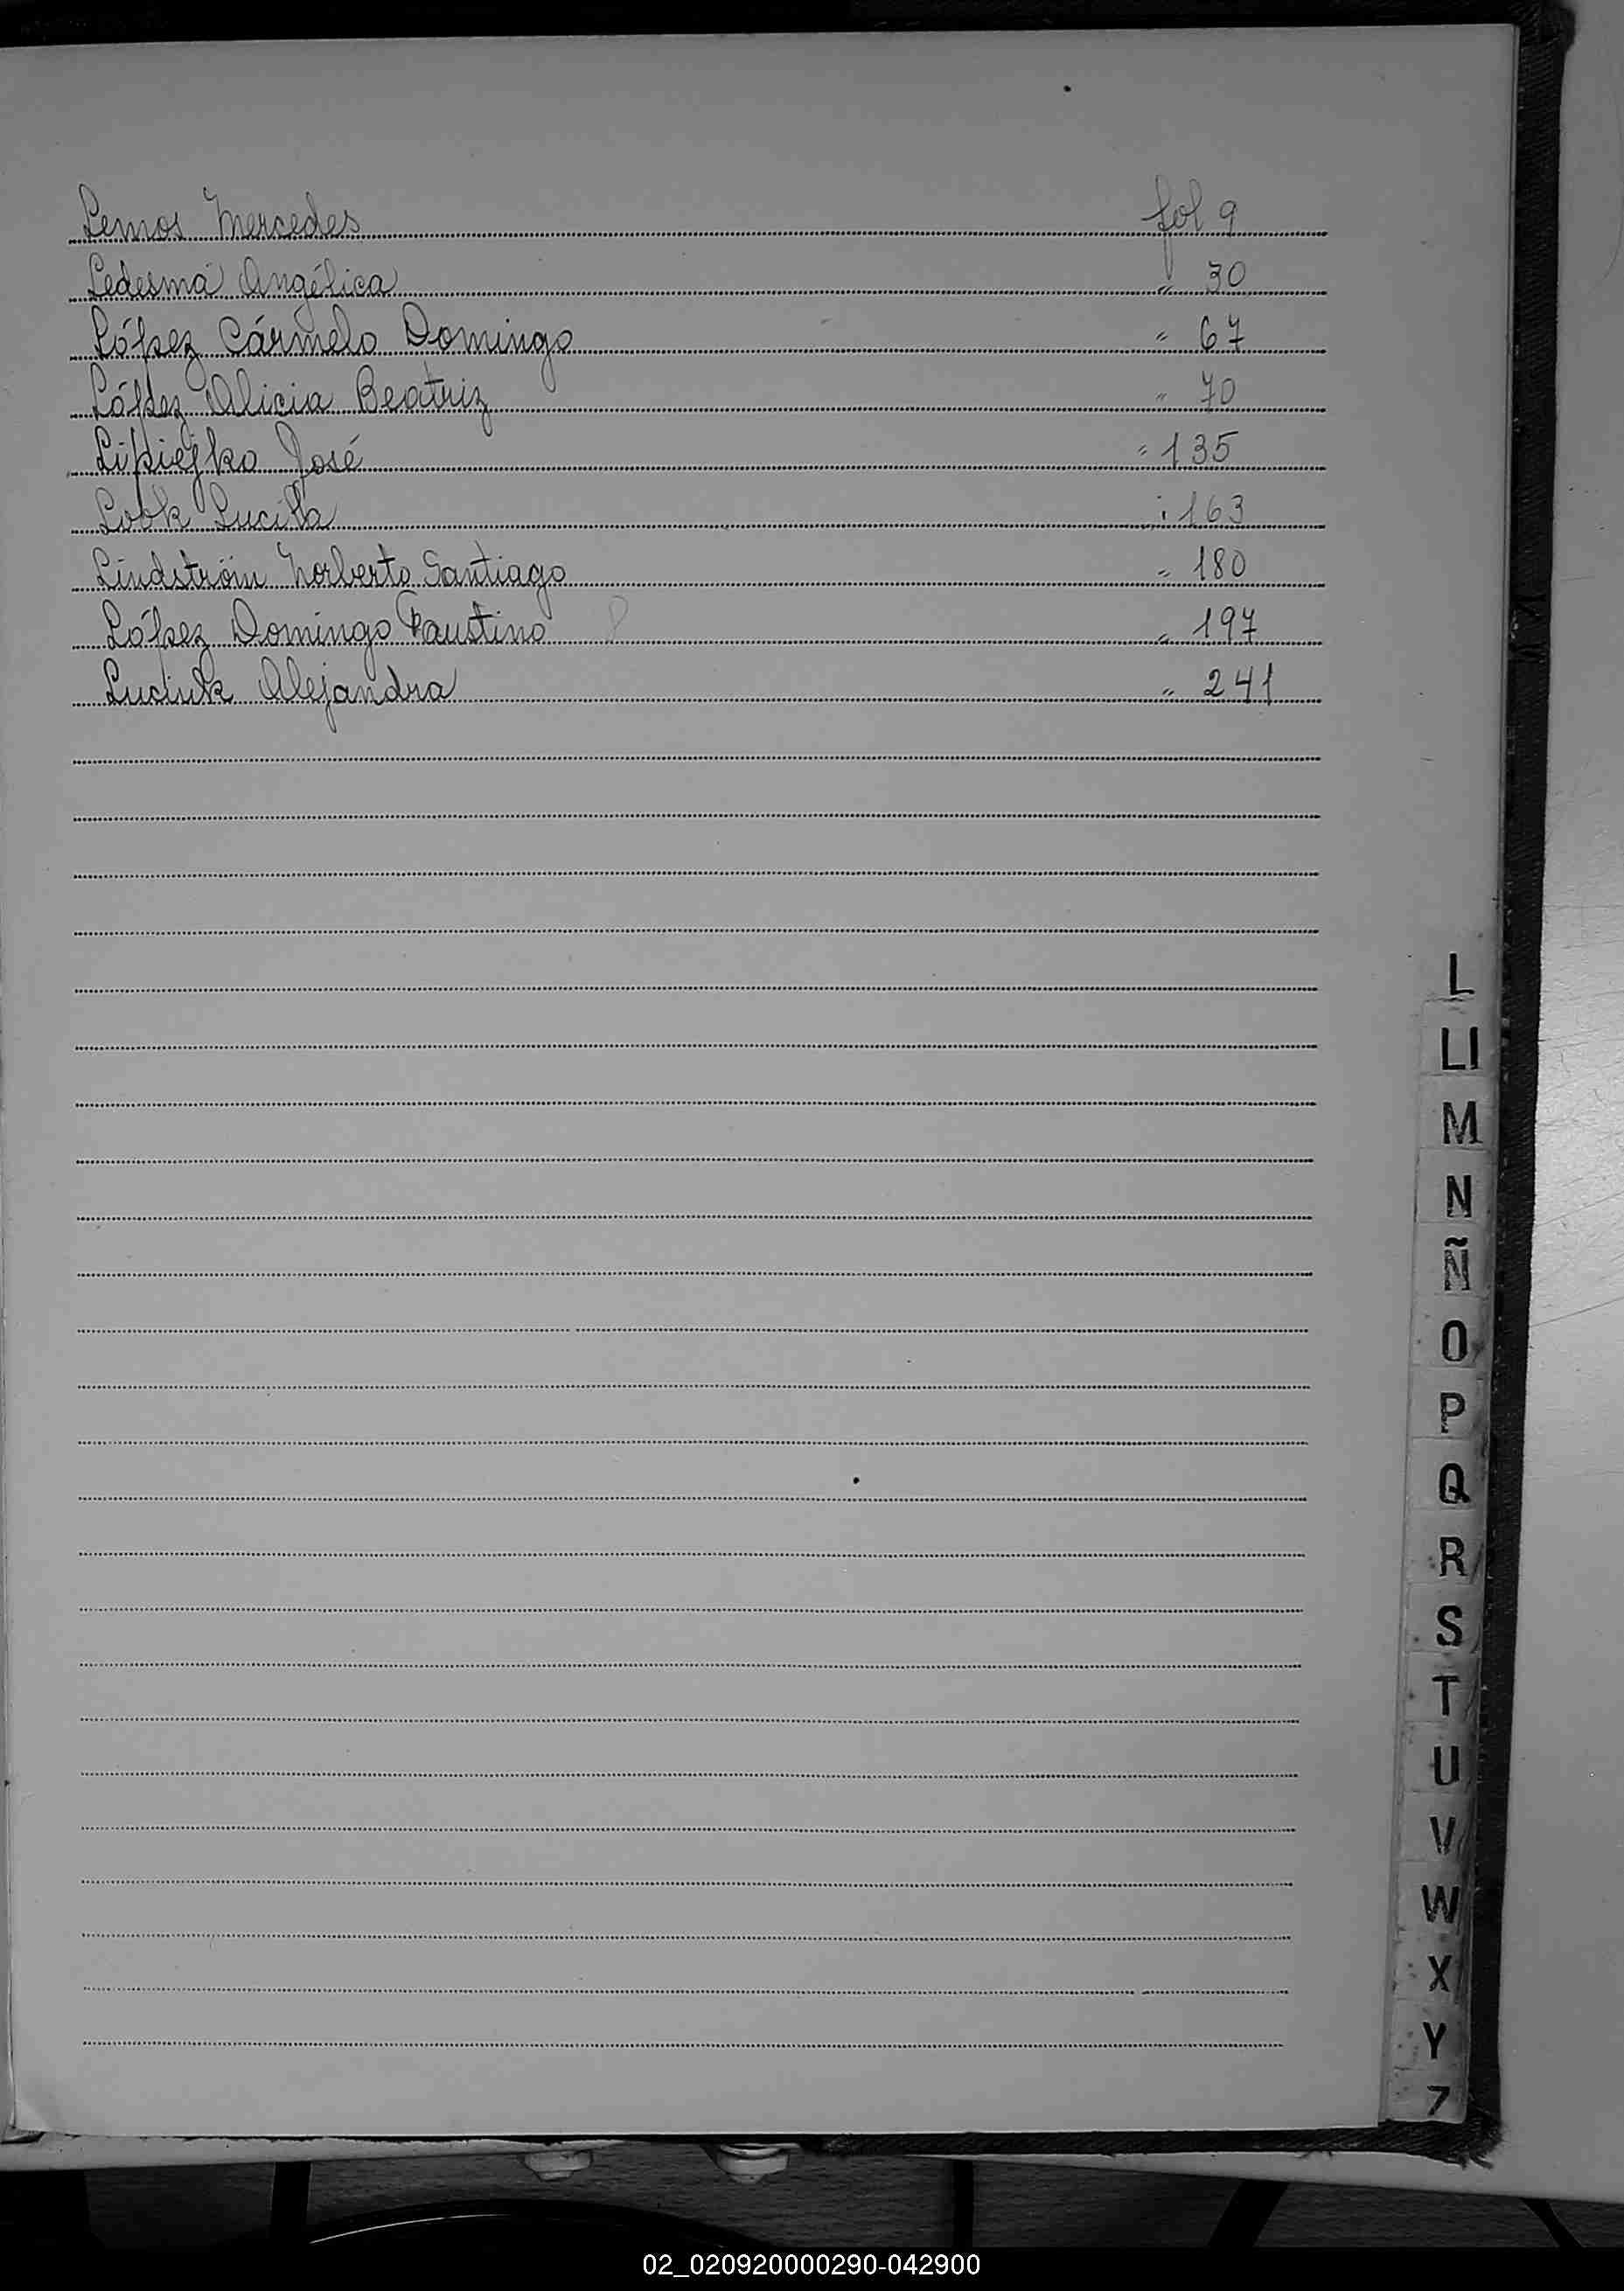 Lemos Mercedes fol 9
Ledesma Angélica " 30
López Cármelo Domingo " 67
López Alicia Beatriz " 70
Lipiejko José " 135
Look Lucila " 163
Lindström Norberto Santiago " 180
López Domingo Faustino " 197
Luciuk Alejandra " 241
L
Ll
M
N
Ñ
O
P
Q
R
S
T
U
V
W
X
Y
Z
02_020920000290-042900